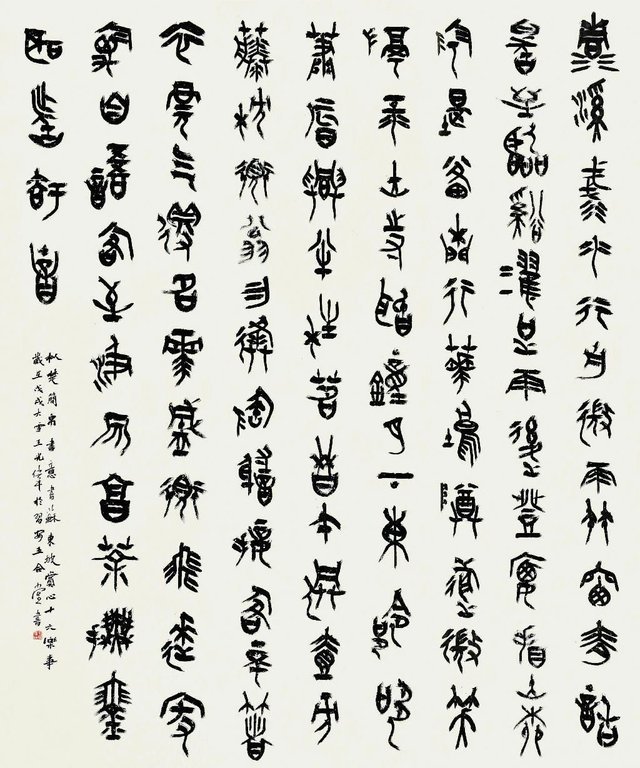 清溪淺水行舟微雨竹窗夜話
暑至臨溪濯足雨後登樓看山柳
陰堤畔閒行華塢樽前微笑
隔江山寺聞鐘月下東鄰吹
蕭晨興半炷茗香午倦壹方
藤枕開甕勿逢陶謝接客不著
衣冠乞得名花盛開飛來家
禽自語客至汲泉烹茶撫琴
聽者知音
楚簡帛書意書蘇東坡賞心十六樂事
歲在戊戌大雪王